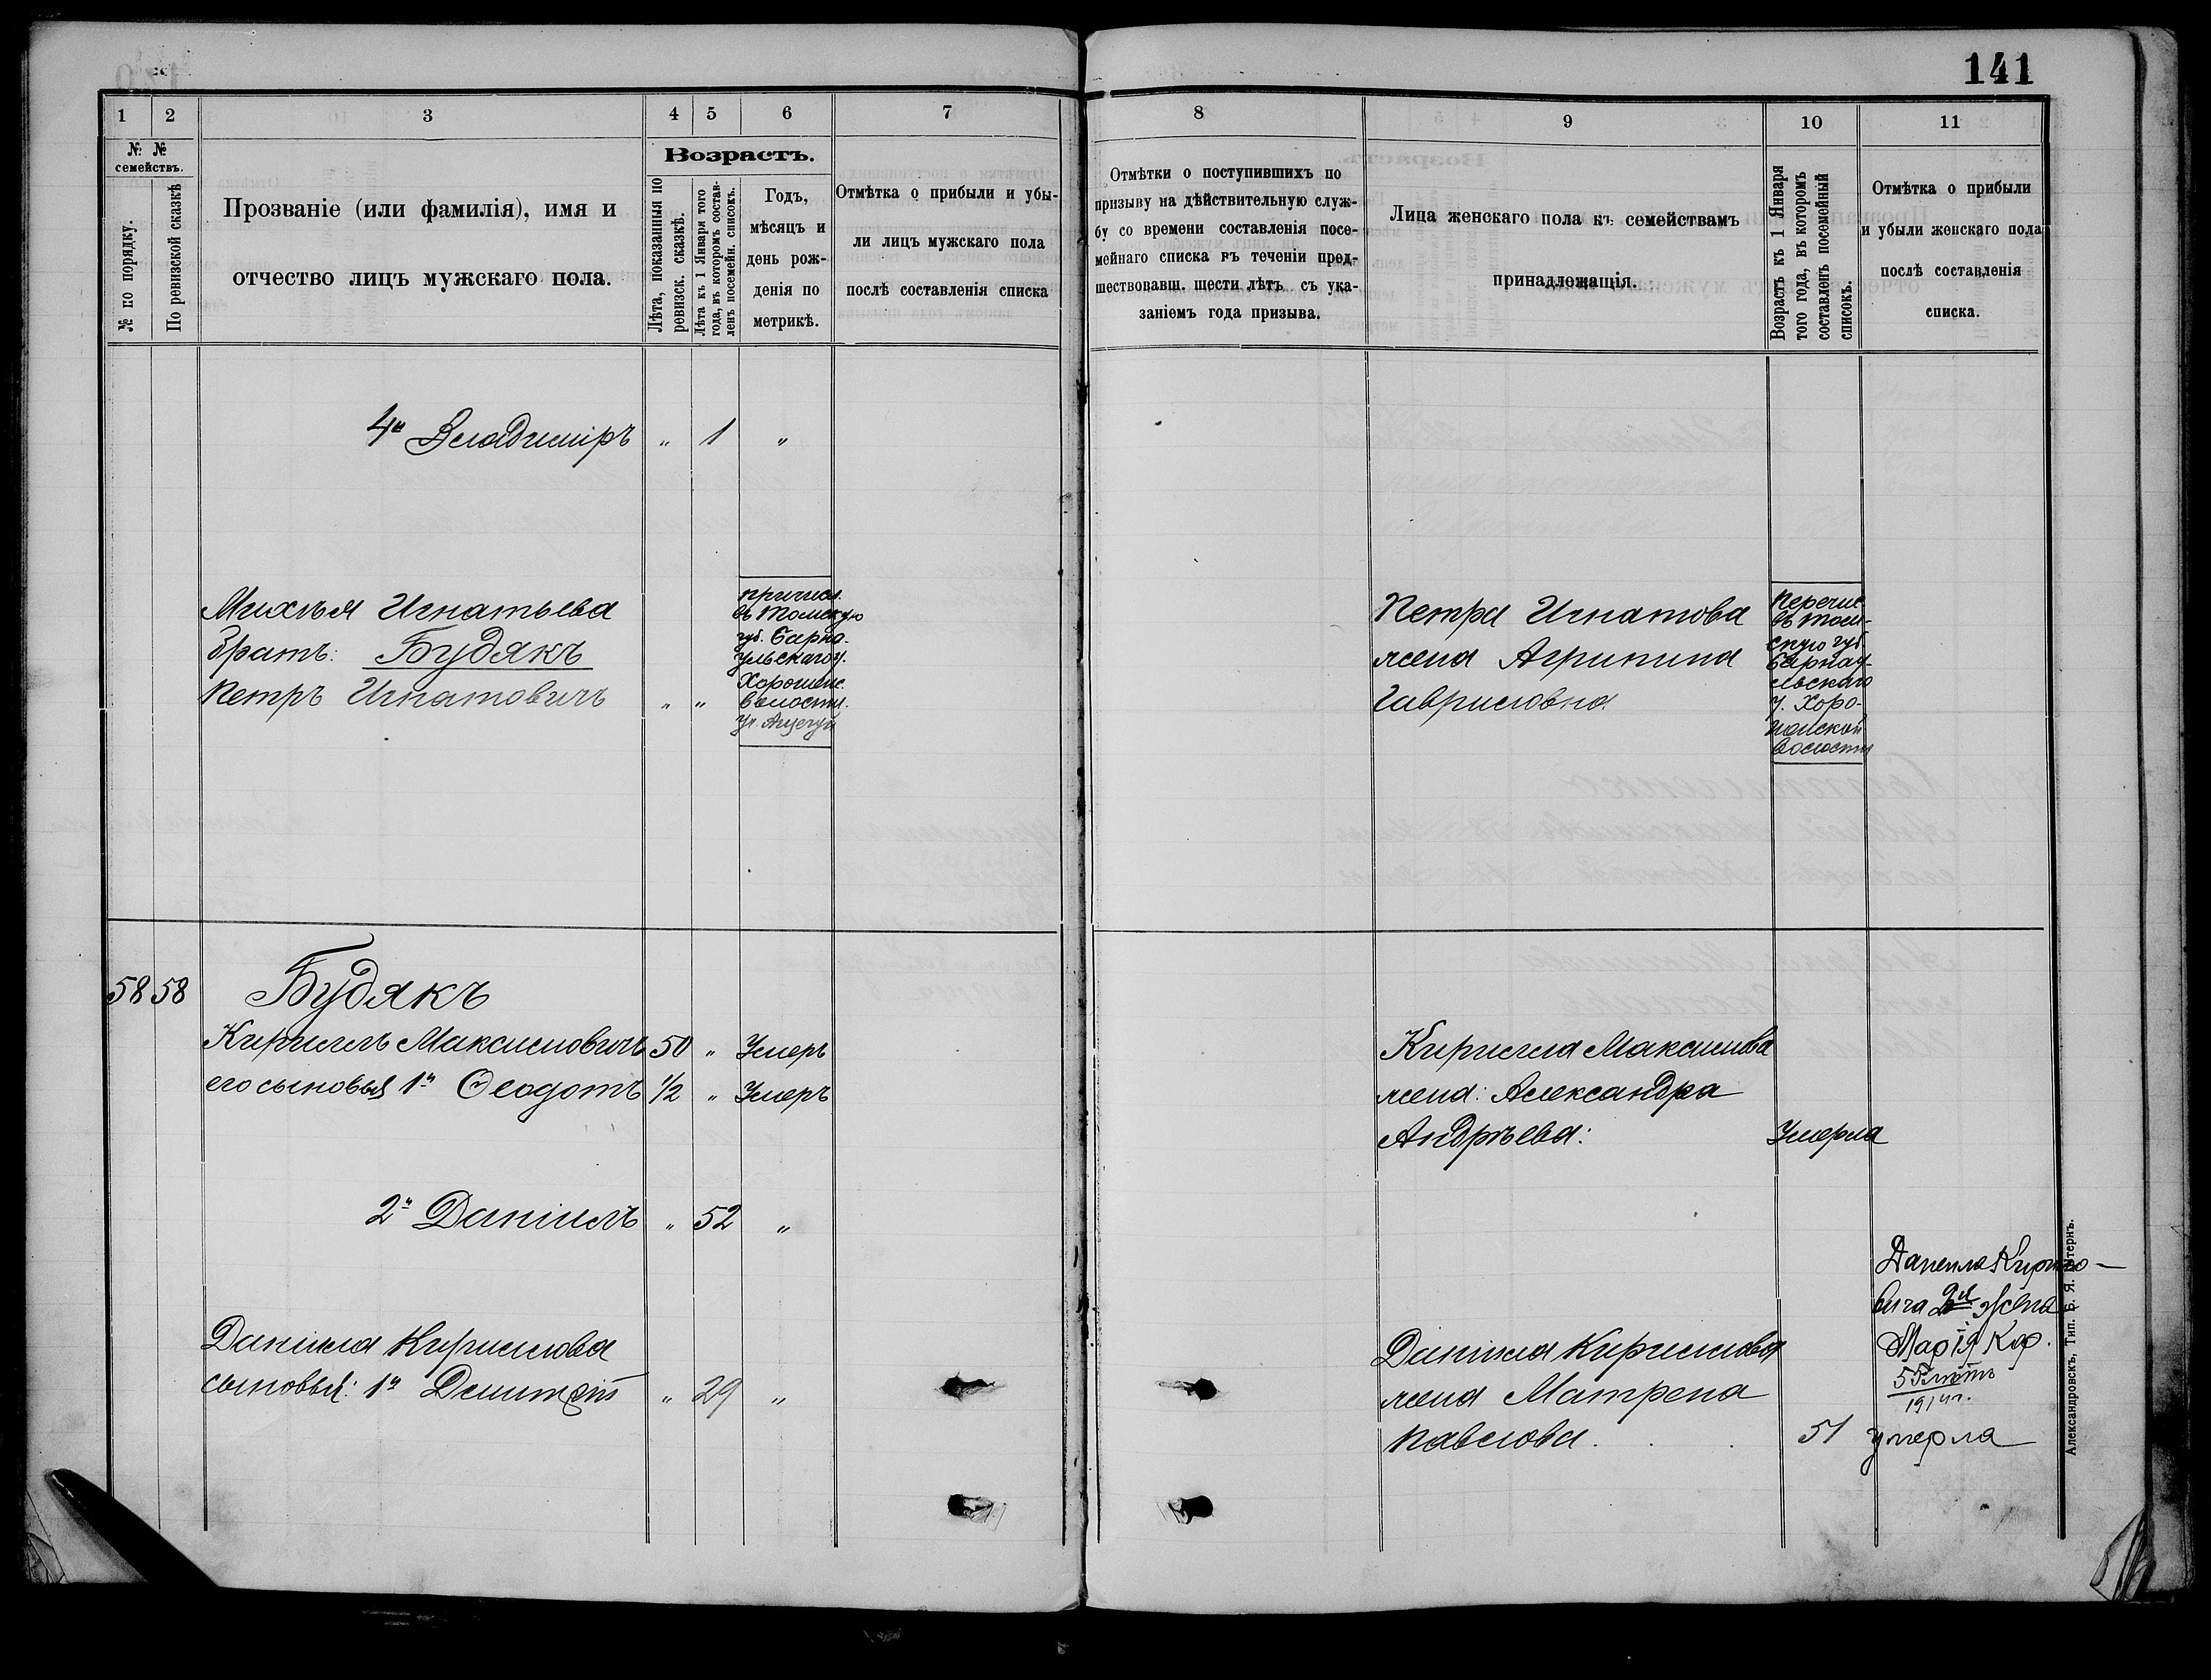 141
1 2 3 4 5 6 7
№ №
семействъ.
№ по порядку.
По ревизской сказкѣ
Прозваніе (или фамилія), имя и
отчество лицъ мужскаго пола.
Возрастъ.
Лѣта, показанныя по
ревизск. сказкѣ.
Лѣта къ 1 Января того
года, въ которомъ состав-
ленъ посемейн. списокъ.
Годъ,
мѣсяцъ и
день рож-
денія по
метрикѣ.
Отмѣтка о прибыли и убы-
ли лицъ мужскаго пола
послѣ составленія списка
4й Владиміръ " 1 "
Михѣя Игнатьева
братъ: Будякъ
Петръ Игнатовичъ " "
причисл.
въ Томскую
губ. Барна-
ульскаго у.
волости.
58 58 Будякъ
Кириллъ Максимовичъ 50 " Умеръ
его сыновья 1й Ѳеодотъ 1/2 " Умеръ
2й Даніилъ " 52 "
Даніила Кириллова
сыновья: 1й Дмитрій " 29 "
8 9 10 11
Отмѣтки о поступившихъ по
призыву на дѣйствительную служ-
бу со времени составленія посе-
мейнаго списка въ теченіи пред-
шествовавш. шести лѣтъ съ ука-
заніемъ года призыва.
Лица женскаго пола къ семействамъ
принадлежащія.
Возрастъ къ 1 Января
того года, въ которомъ
составленъ посемейный
списокъ.
Отмѣтка о прибыли
и убыли женскаго пола
послѣ составленія
списка.
Петра Игнатова
жена Агрипина
Гавриловна
Перечис
въ Том-
скую губ
Барнау-
льскаго
у. Хоро-
волости
Кирилла Максимова
жена: Александра
Андрѣева: Умерла
Даніила Кириллова
жена Матрена
Павлова. 51 умерла
Данила Кирило-
вича 2я жена
Марія Кар.
55 лѣтъ
1914 г.
Александровскъ, Тип. Б. Я. Штернъ.